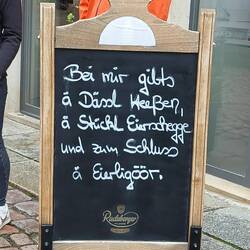 Bei mir gibts
ä Dässl Heeßen,
ä Stückl Eierschegge
und zum Schluss
ä Eierligöör.
Radeberger